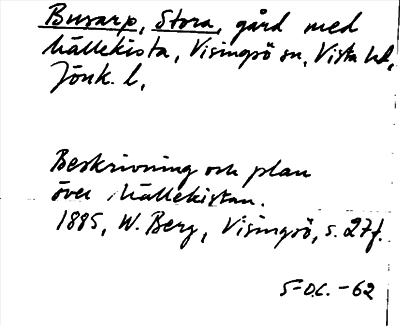 Busarp, Stora, gård med
hällekista, Visingsö sn, Vista hd,
Jönk. l.
Beskrivning och plan
över hällekistan.
1885, W. Berg, Visingsö, s. 27f.
S-O.C. -62